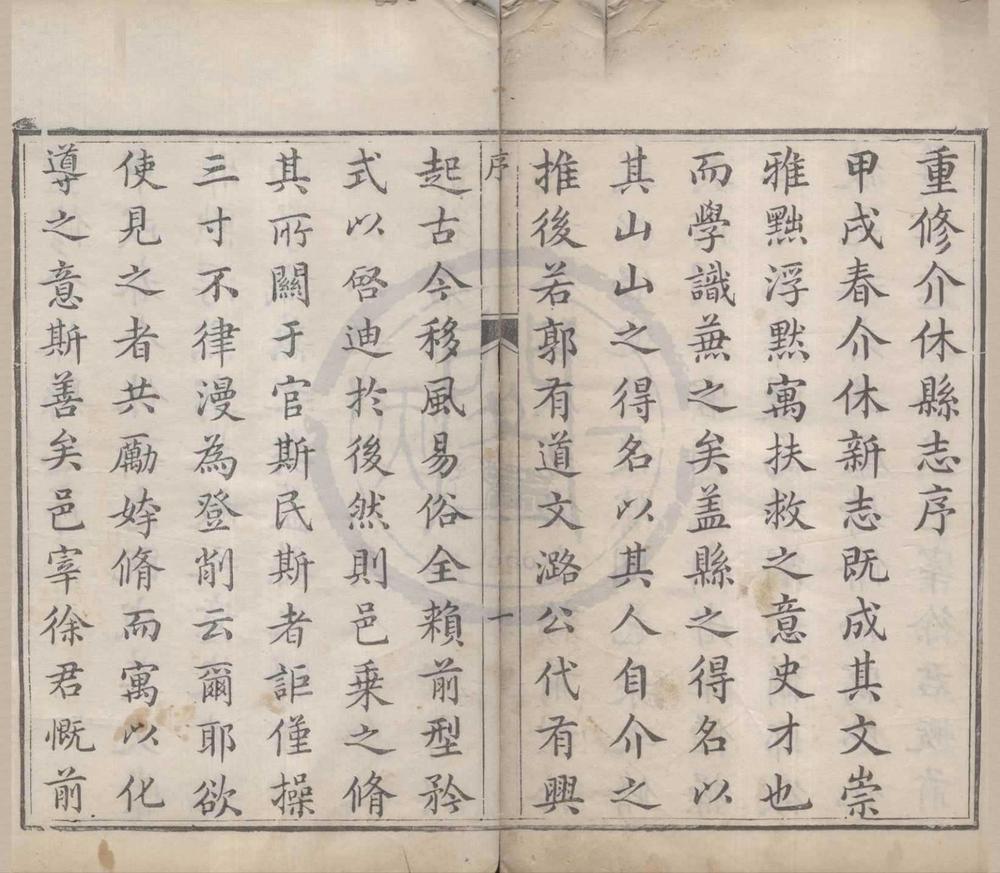 重修介休縣志序
甲戌春介休新志既成其文崇
雅黜浮默寓扶救之意史才也
而學識蕪之矣盖縣之得名以
其山山之得名以其人自介之
推後若郭有道文潞公代有興
序
一
起古今移風易俗全賴前型矜
式以啓迪於後然則邑乗之脩
其所關于官斯民斯者詎僅操
三寸不律漫為登削云爾耶欲
使見之者共勵姱脩而寓以化
導之意斯善矣邑宰徐君慨前